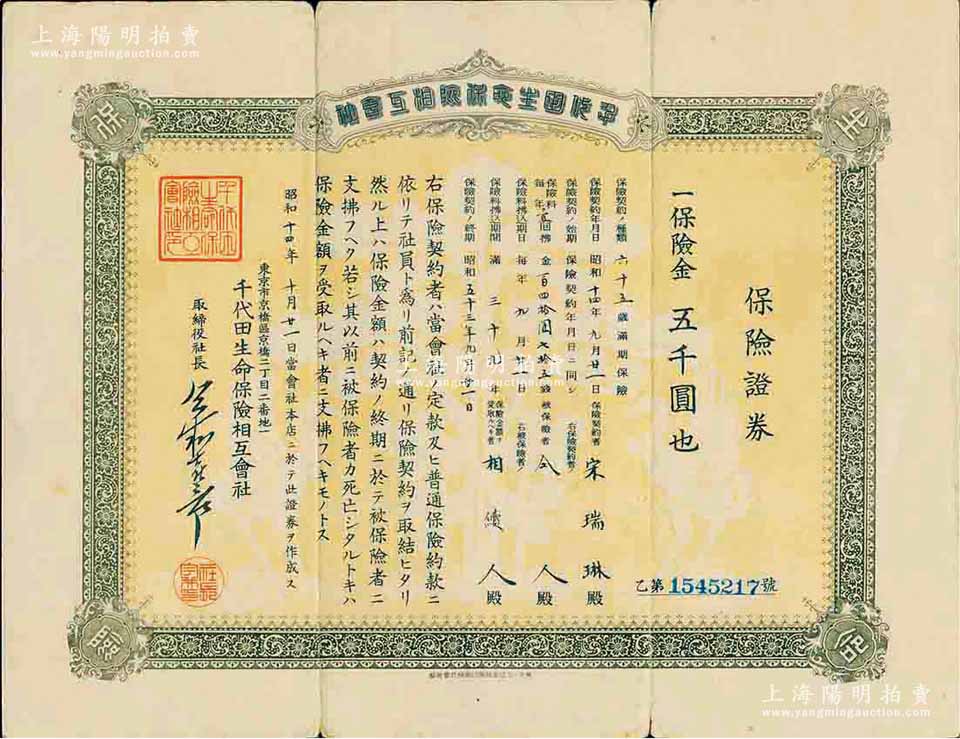 上海陽明拍賣
www.yangmingauction.com
千代田生命保險相互會社
保險證券
一保險金 五千圓也
保險契約ノ種類 六十五歲滿期保險
保險契約年月日 昭和十四年九月廿一日
保險契約ノ始期 保險契約年月日ニ同シ
保險料每年壹回拂 金百四拾圓七拾五錢
保險料拂込期日 每年九月廿一日
保險料拂込期間 滿三十九年
保險契約ノ終期 昭和五十三年九月廿一日
保險契約者 宋瑞琳殿
被保險者 右保險契約者ノ 本人殿
保險金額ヲ受取ルヘキ者 右被保險者ノ 相續人殿
右保險契約者ハ當會社ノ定款及ヒ普通保險約款ニ
依リテ社員ト爲リ前記ノ通リ保險契約ヲ取結ヒタリ
然ル上ハ保險金額ハ契約ノ終期ニ於テ被保險者ニ
支拂フヘク若シ其以前ニ被保險者カ死亡シタルトキハ
保險金額ヲ受取ルヘキ者ニ支拂フヘキモノトス
昭和十四年十月廿一日當會社本店ニ於テ此證券ヲ作成ス
東京市京橋區京橋二丁目二番地一
千代田生命保險相互會社
取締役社長
乙第1545217號
上海陽明拍賣
www.yangmingauction.com
上海陽明拍賣
www.yangmingauction.com